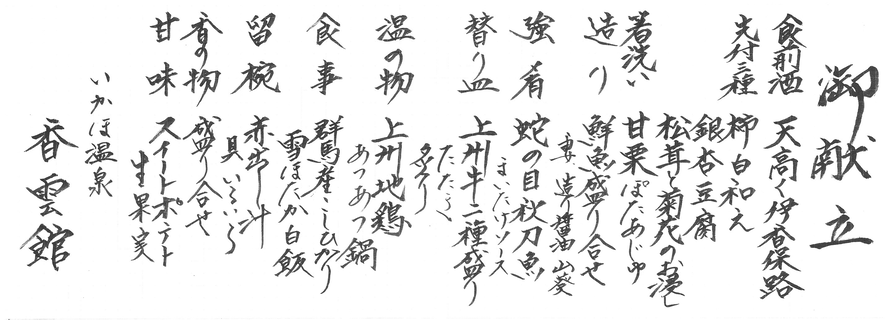 御献立
食前酒 天高く伊香保路
先付三種 柿白和え
銀杏豆腐
松茸と菊花のお浸し
箸洗い 甘栗ぽたあじゅ
造り 鮮魚盛り合せ
妻 造り醤油 山葵
強肴 蛇の目秋刀魚
まいたけソース
替り皿 上州牛二種盛り
たたき
温の物 上州地鶏
あつあつ鍋
食事 群馬産こしひかり
雪ほたか白飯
留椀 赤出し汁
具いろいろ
香の物 盛り合せ
甘味 スイートポテト
生果実
いかほ温泉
香雲館